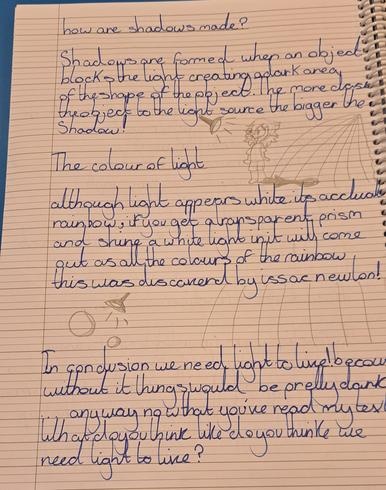 how are shadows made?
Shadows are formed when an object
blocks the light creating a dark area
of the shape of the object. The more close
the object to the light source the bigger the
Shadow!
The colour of light
although light appears white, its acctualy
rainbow, if you get a transparent prism
and shine a white light in it will come
out as all the colours of the rainbow
this was discoverd by issac newton!
In conclusion we need light to live! becau
without it things would be pretty dark
... anyway now that you've read my tex
What do you think like do you thinke we
need light to live?